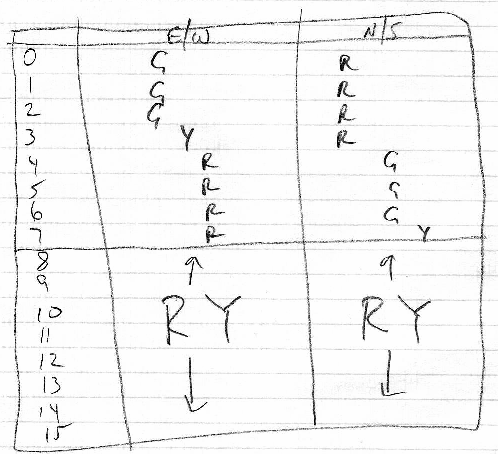 E/W N/S
0 G R
1 G R
2 G R
3 Y R
4 R G
5 R G
6 R G
7 R Y
8
9
10
11
12
13
14
15
RY RY